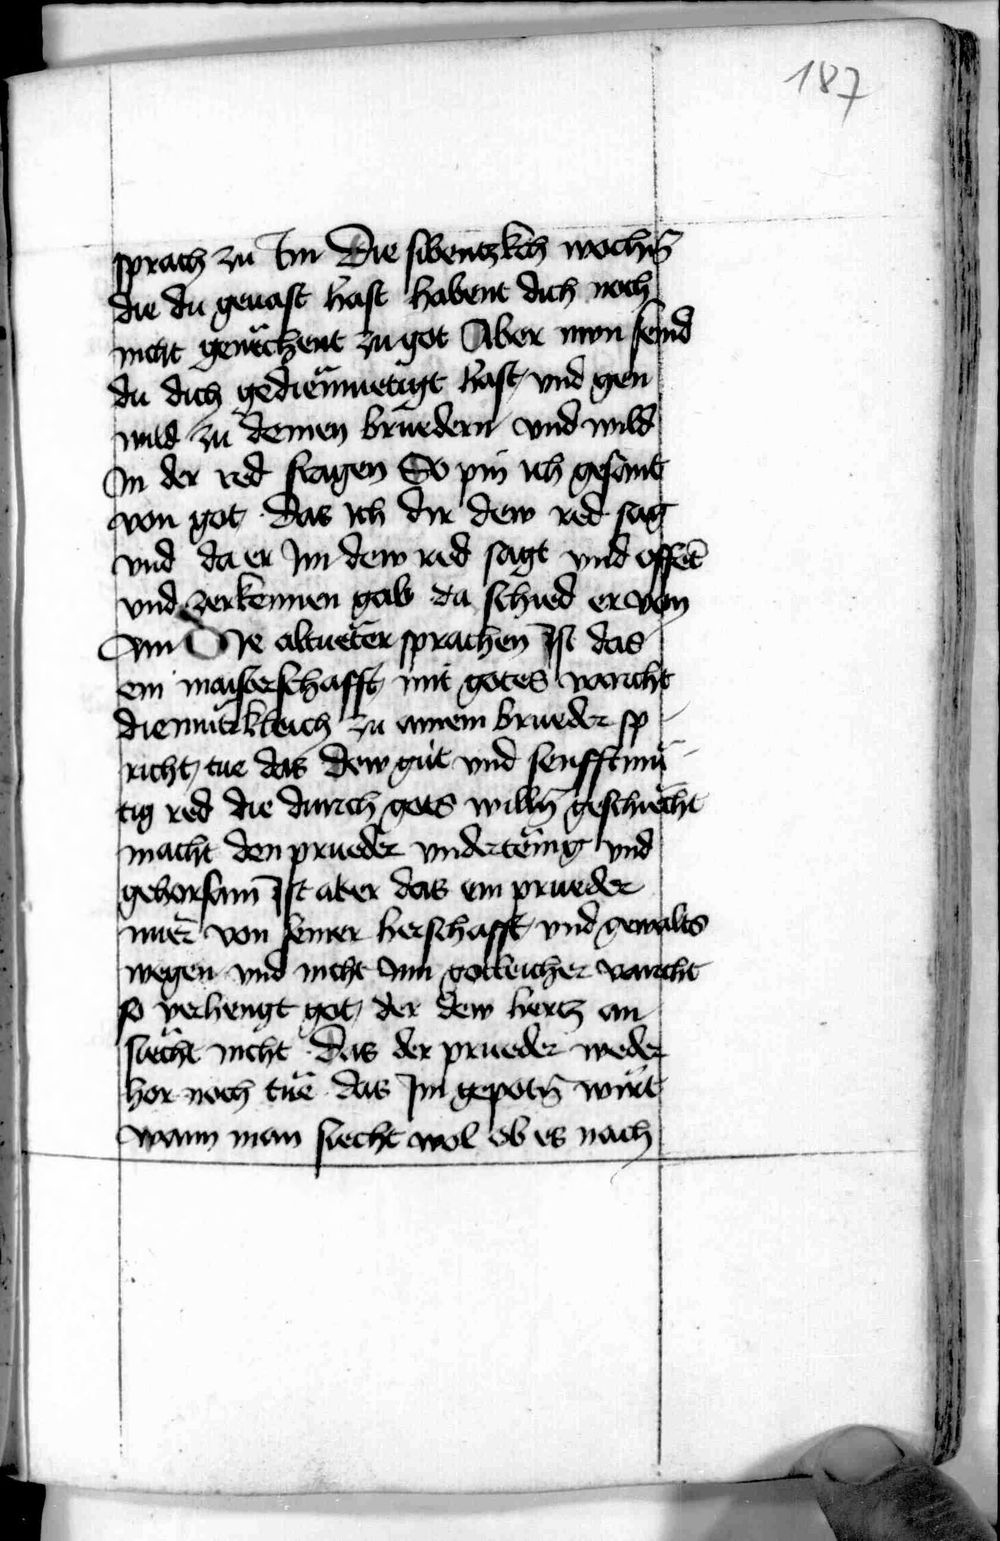 187
sprach zu Im Die sibentzkch wochn̄
die du geuast hast habent dich noch
nicht genëchent zu got Aber nwn seind
du dich gediemuetigt hast vnd gen
wild zu deinen bruedern vnd wild
In der red fragen So pin ich gesant
von got das ich dir dew red sag
vnd da er Im dew red sagt vnd offet̄
vnd zerkennen gab da schied er von
Im Die altueter sprachen Ist das
ein maisterschafft mit gotes varicht
diemutikleich zu ainem brueder sp
richt tue das dew gut vnd senfftmu
tig red die durch gots willn̄ geschiecht
macht den prueder vndertenig vnd
gehorsam Ist aber das ein prueder
nuer von seiner herschafft vnd gewalts
wegen vnd nicht Inn gotleicher varicht
so verhengt got der dew hertz an
siecht nicht das der prueder weder
hor noch tue das Im gepotn̄ wirt
wann man siecht wol ob es nach